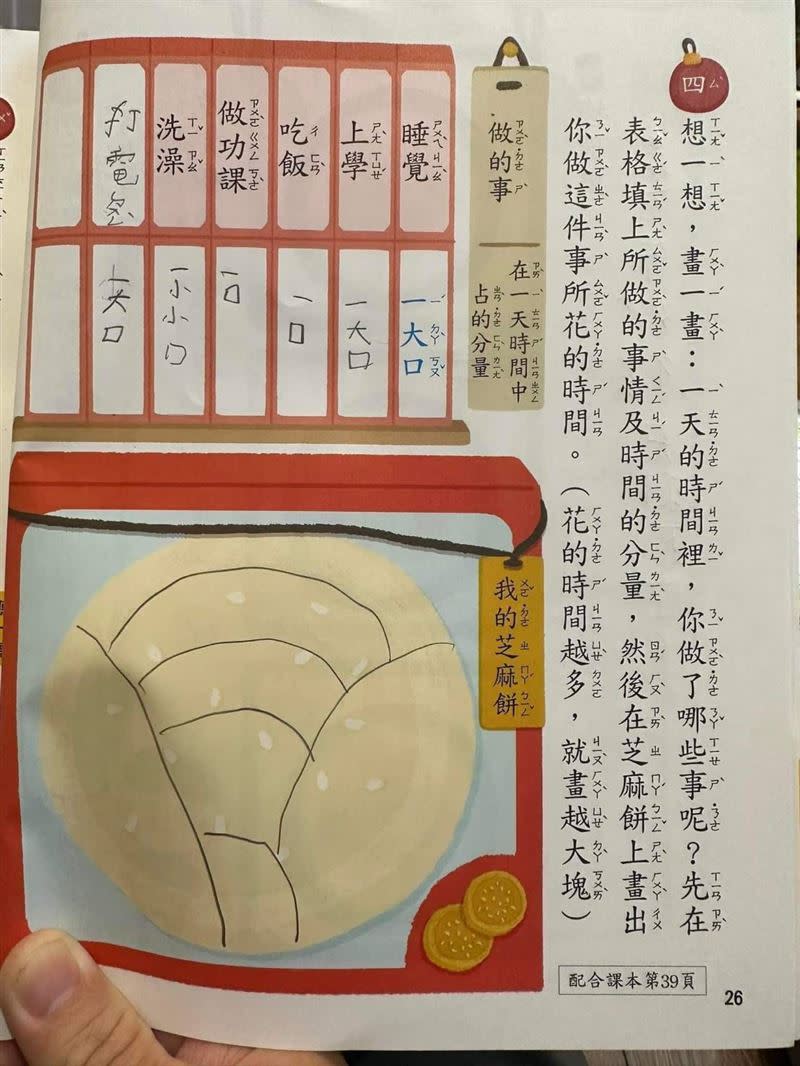 四
想一想，畫一畫：一天的時間裡，你做了哪些事呢？先在
表格填上所做的事情及時間的分量，然後在芝麻餅上畫出
你做這件事所花的時間。（花的時間越多，就畫越大塊）
做的事
在一天時間中
占的分量
睡覺
一大口
上學
一大口
吃飯
一口
做功課
一口
洗澡
一小小口
打電
一大口
我的芝麻餅
配合課本第39頁
26